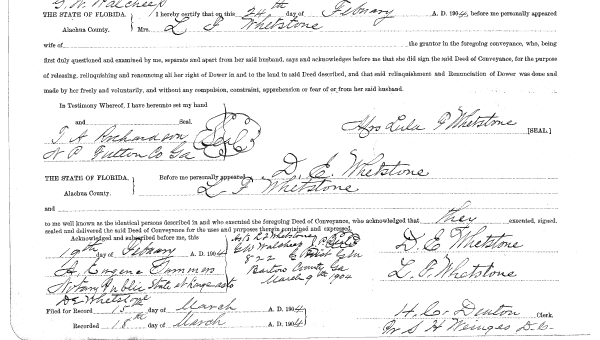 THE STATE OF FLORIDA, I hereby certify that on this 24th day of Febuary A. D. 1904, before me personally appeared
Alachua County. Mrs. L F Whetstone
wife of the grantor in the foregoing conveyance, who, being
first duly questioned and examined by me, separate and apart from her said husband, says and acknowledges before me that she did sign the said Deed of Conveyance, for the purpose
of releasing, relinquishing and renouncing all her right of Dower in and to the land in said Deed described, and that said relinquishment and Renunciation of Dower was done and
made by her freely and voluntarily, and without any compulsion, constraint, apprehension or fear of or from her said husband.
In Testimony Whereof, I have hereunto set my hand
and Seal. Mrs Lula F Whetstone [SEAL.]
T A Richardson Seal
N P Fulton Co Ga
THE STATE OF FLORIDA, Before me personally appeared D. E. Whetstone
Alachua County. L F Whetstone
and
to me well known as the identical persons described in and who executed the foregoing Deed of Conveyance, who acknowledged that they executed, signed,
sealed and delivered the said Deed of Conveyance for the uses and purposes therein contained and expressed.
Acknowledged and subscribed before me, this
19th day of Febuary A. D. 1904
D. E. Whetstone
822
Bartow County Ga
March 9th 1904
L. F. Whetstone
Notary Public State at large as to
D E Whetstone
Filed for Record 15th day of March A. D. 1904
H. C. Denton Clerk,
Recorded 18th day of March A. D. 1904
Pr S H Wienges D. C.